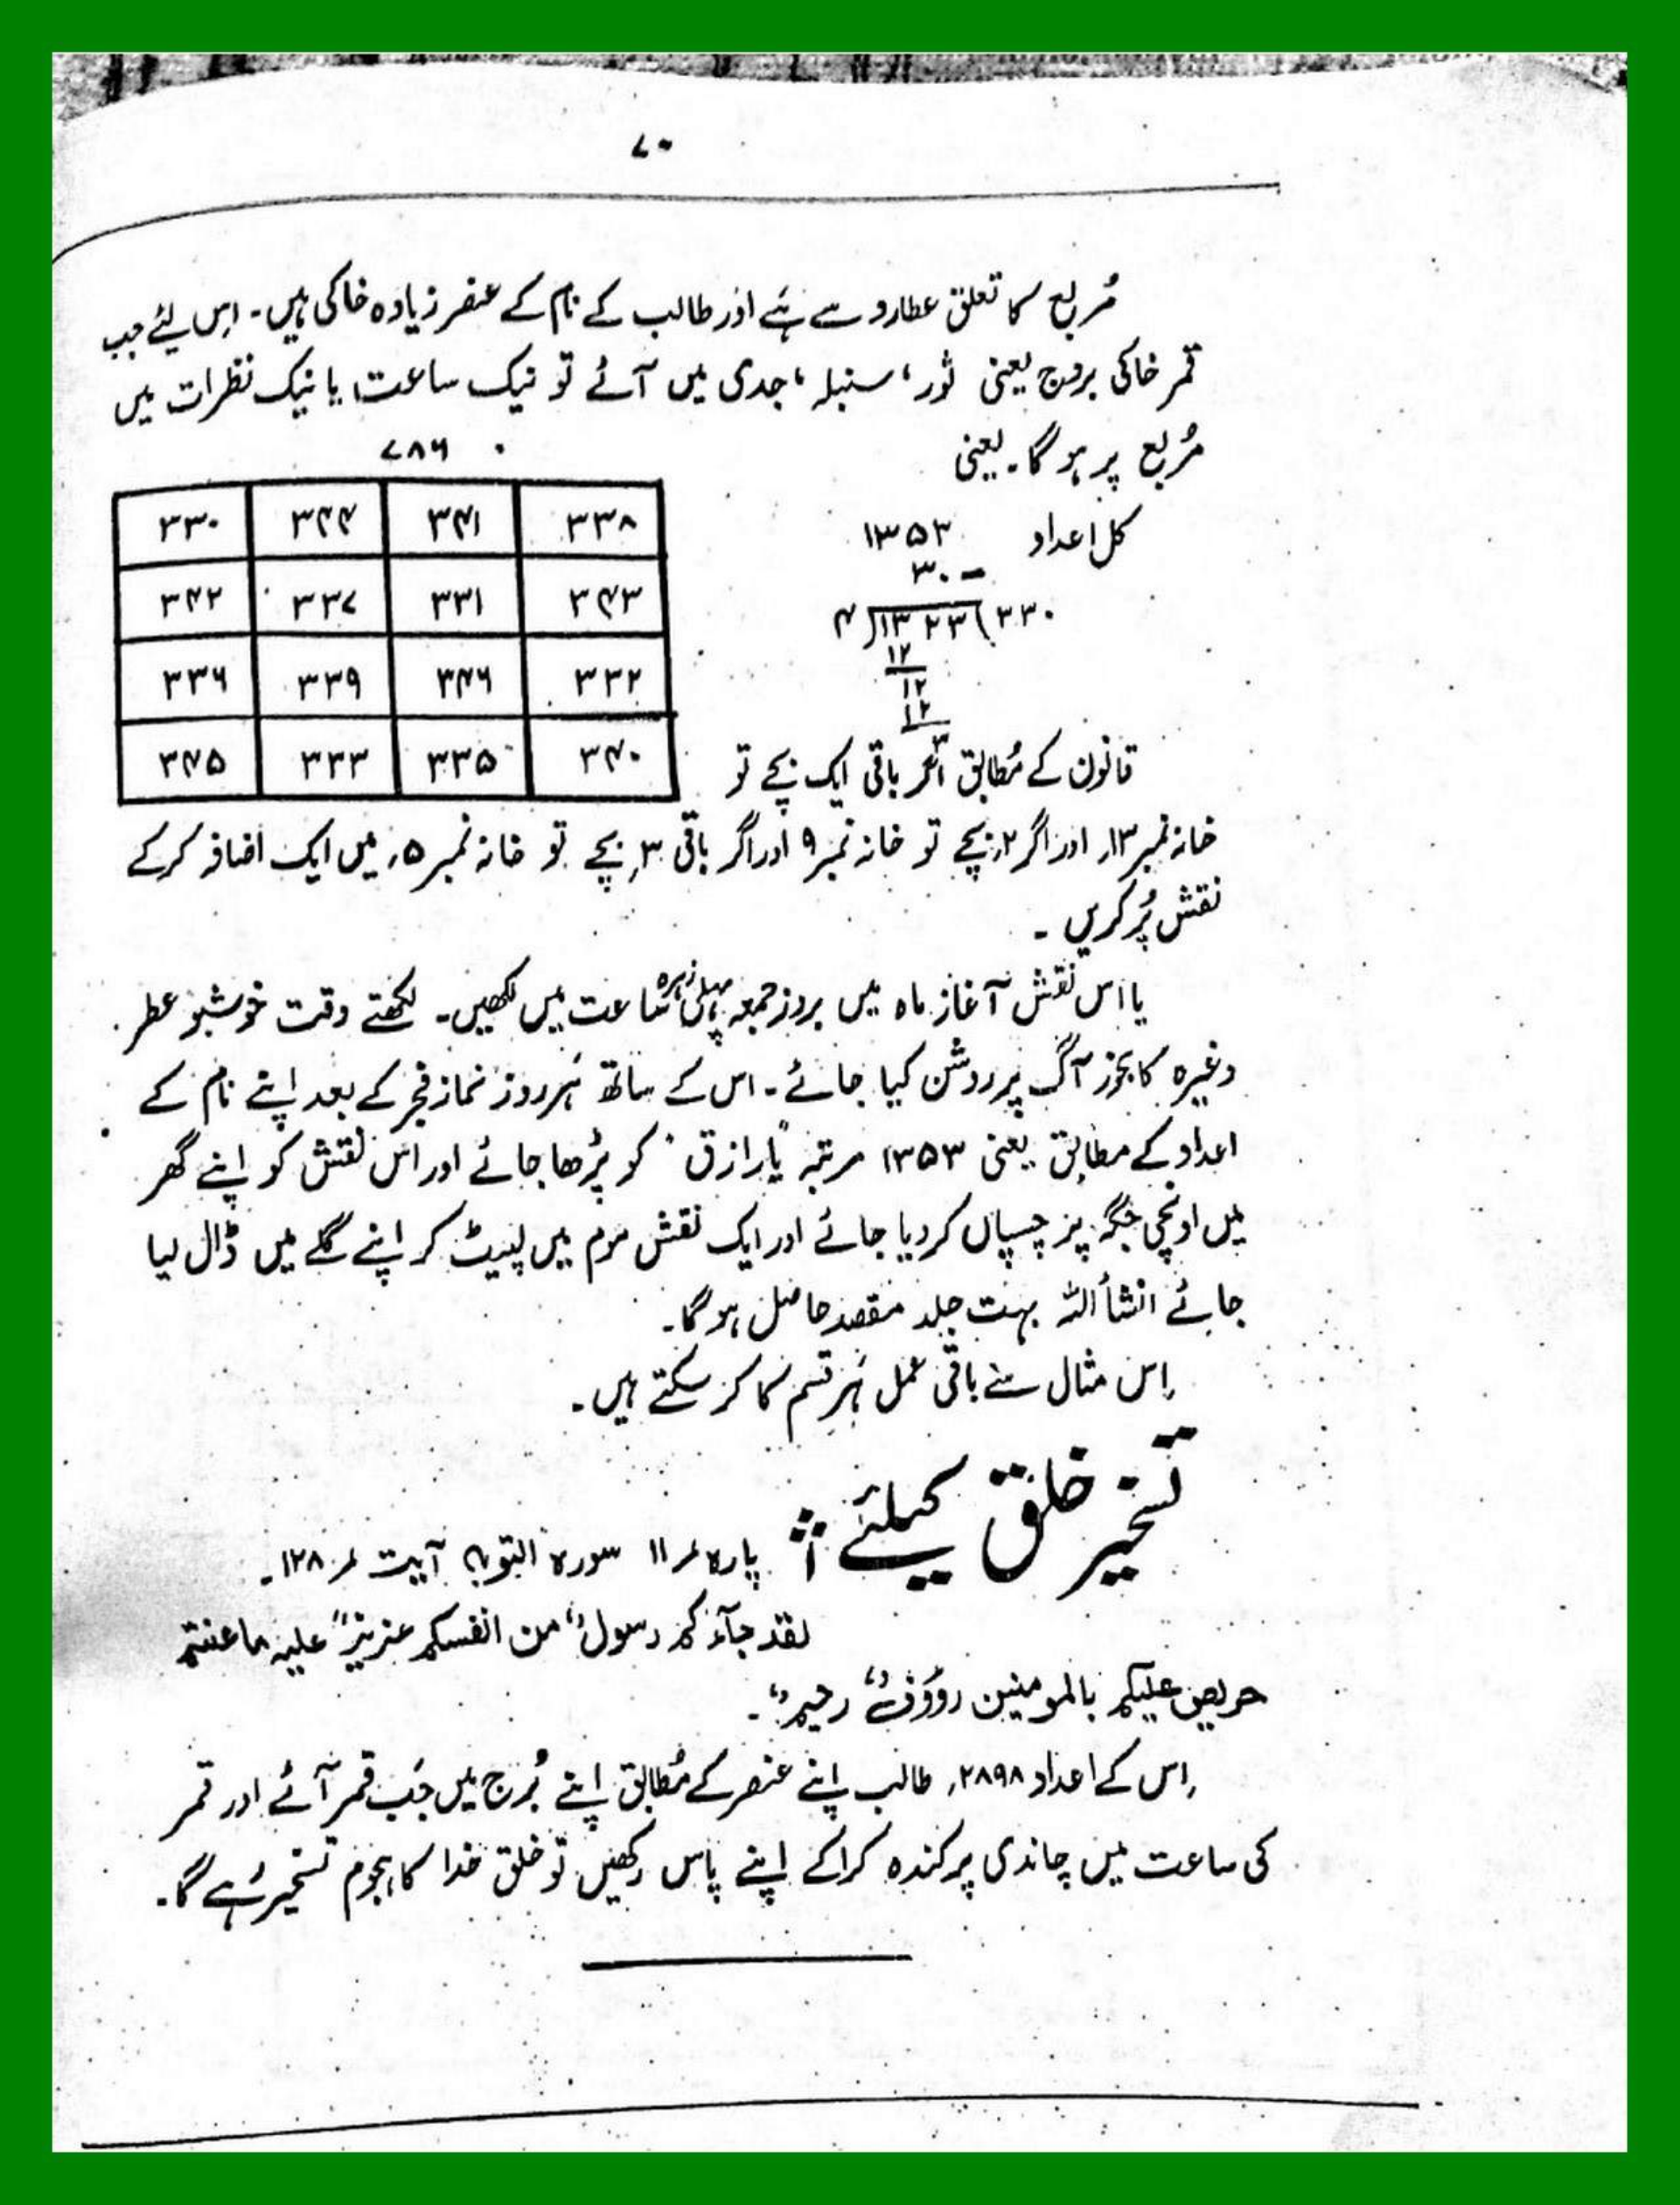 ۷۰
مُربع کا تعلق عطارد سے ہے اور طالب کے نام کے عنصر زیادہ خاکی ہیں۔ اِس لیٔے جب
قمر خاکی بروج یعنی ثور، سنبلہ، جدی میں آئے تو نیک ساعت یا نیک نظرات میں
مُربع پر ہو گا۔ یعنی
۷۸۶
۳۳۸ ۳۴۱ ۳۴۴ ۳۳۰
۳۴۳ ۳۳۱ ۳۳۷ ۳۴۲
۳۳۲ ۳۴۶ ۳۳۹ ۳۳۶
۳۴۰ ۳۳۵ ۳۳۳ ۳۴۵
کل اعداد ۱۳۵۳
۳۰ -
۴ ) ۱۳۲۳ ( ۳۳۰
۱۲
۱۲
۱۲
۳
قانون کے مُطابق اگر باقی ایک بچے تو
خانہ نمبر ۱۳، اور اگر ۲ بچے تو خانہ نمبر ۹ اور اگر باقی ۳ بچے تو خانہ نمبر ۵ میں ایک اضافہ کرکے
نقش پُر کریں ۔
یا اس نقش آغاز ماہ میں بروز جمعہ پہلی زہرہ ساعت میں لکھیں۔ لکھتے وقت خوشبو عطر
وغیرہ کا بخور آگ پر روشن کیا جائے۔ اس کے ساتھ ہر روز نماز فجر کے بعد اپنے نام کے
اعداد کے مطابق یعنی ۱۳۵۳ مرتبہ "یا رازق" کو پڑھا جائے اور اس نقش کو اپنے گھر
میں اونچی جگہ پر چسپاں کر دیا جائے اور ایک نقش موم میں لپیٹ کر اپنے گلے میں ڈال لیا
جائے انشأاللہ بہت جلد مقصد حاصل ہو گا۔
اِس مثال سے باقی عمل ہر قسم کا کر سکتے ہیں۔
تسخیر خلق کیلئے
پارہ نمبر ۱۱ سورہ التوبہ آیت نمبر ۱۲۸۔
لقد جآءکم رسولٌ من انفسکم عزیزٌ علیہ ما عنتم
حریص علیکم بالمومنین رؤوفٌ رحیمٌ۔
اِس کے اعداد ۲۸۹۸، طالب اپنے عنصر کے مُطابق اپنے بُرج میں جب قمر آئے اور قمر
کی ساعت میں چاندی پر کندہ کرا کے اپنے پاس رکھیں تو خلق خدا کا ہجوم تسخیر رہے گا۔